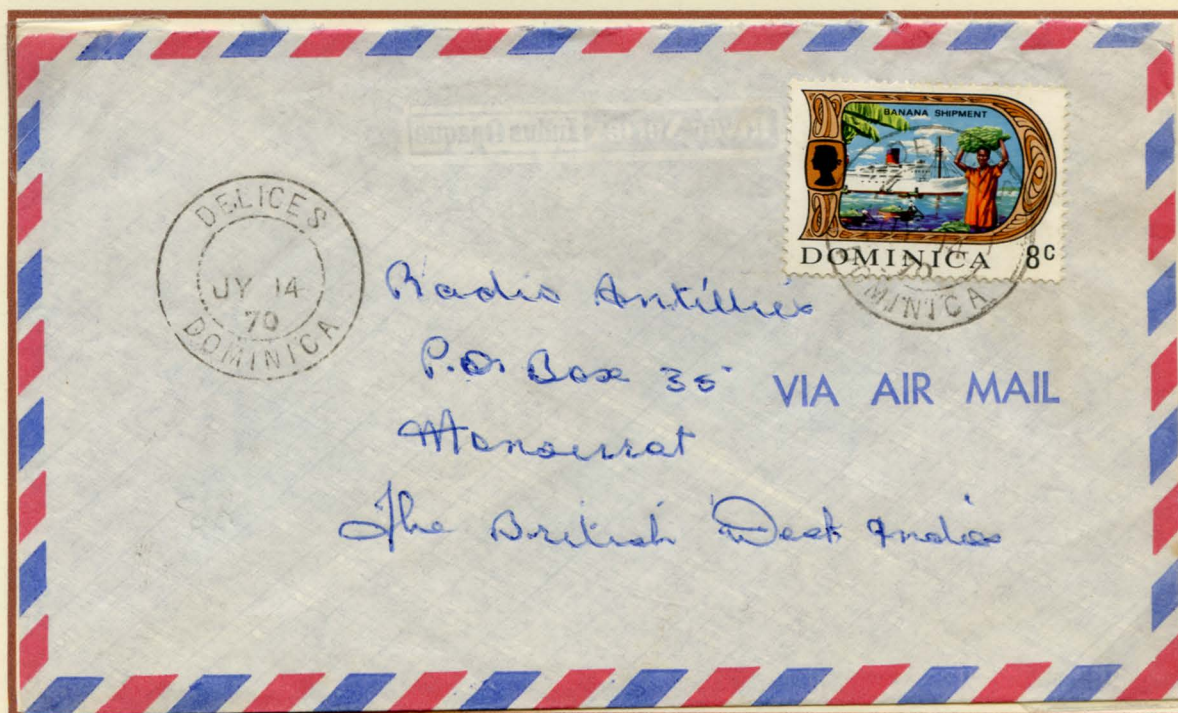 BANANA SHIPMENT
DOMINICA 8c
DELICES
JY 14
70
DOMINICA
14
70
DOMINICA
Radio Antillies
P.O. Box 35
VIA AIR MAIL
The British West Indies